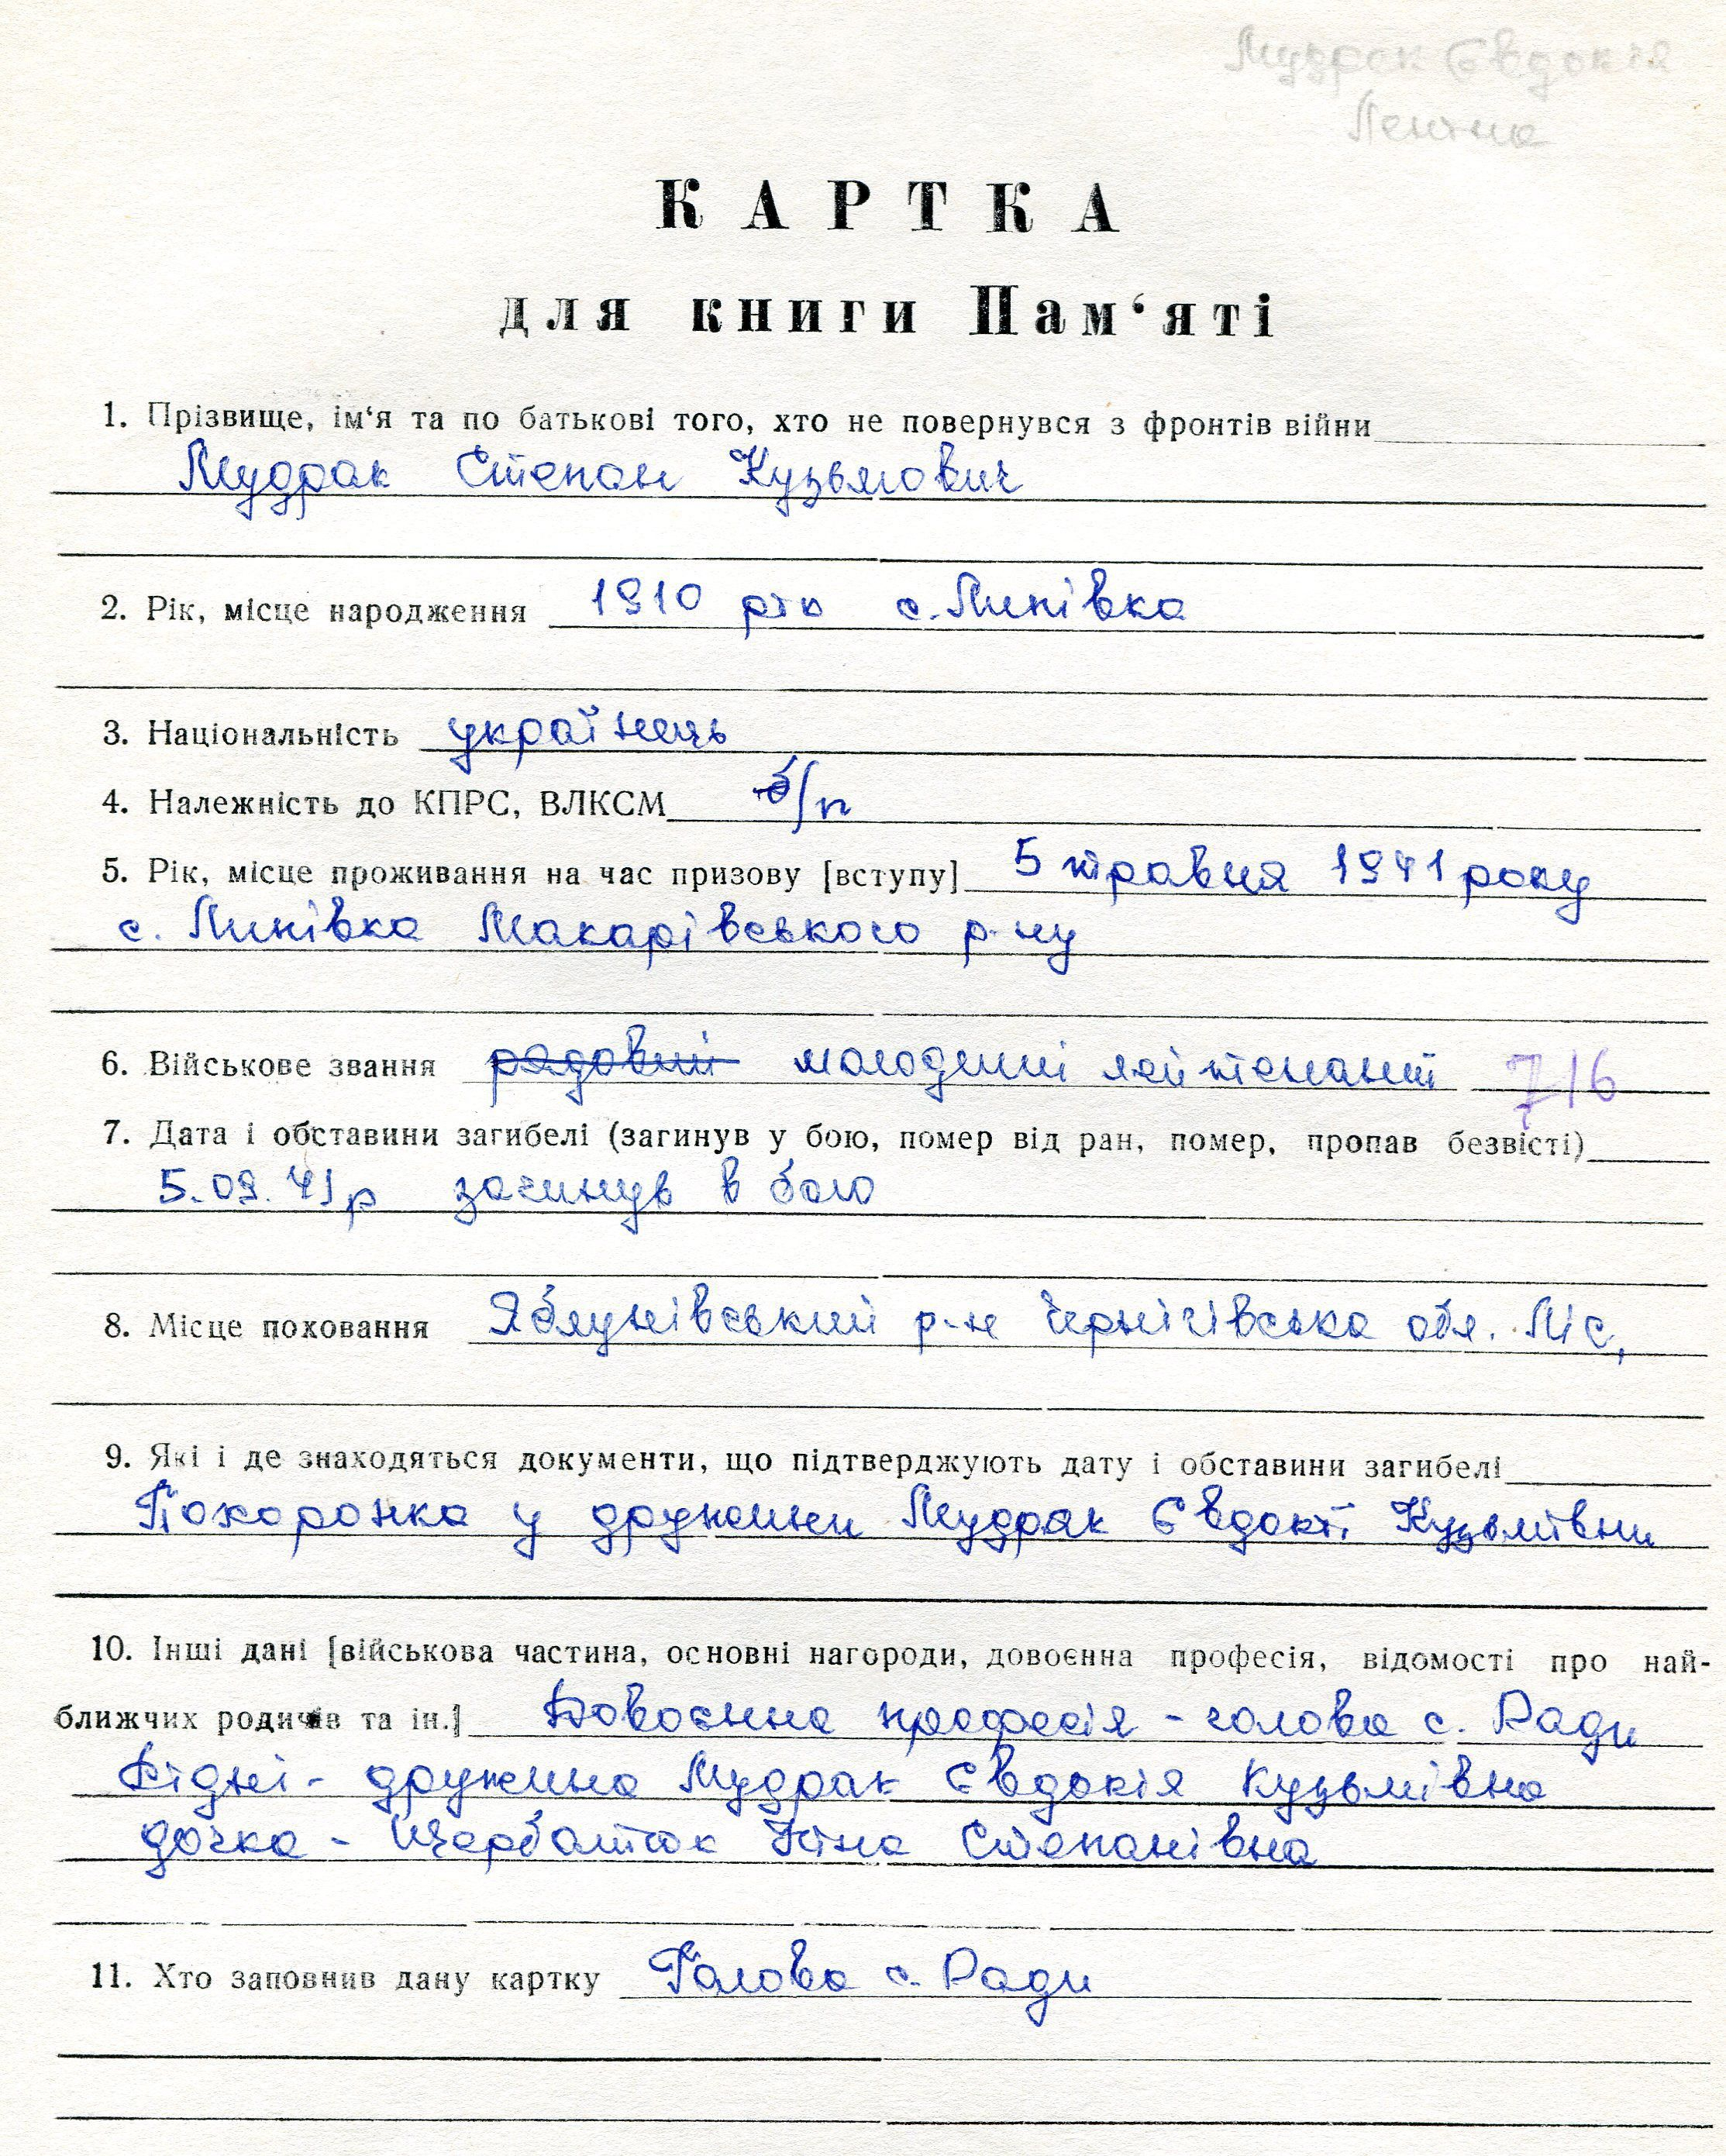 Мудрак Євдокія
Леніна
КАРТКА
для книги Пам‘яті
1. Прізвище, ім‘я та по батькові того, хто не повернувся з фронтів війни
Мудрак Степан Кузьмович
2. Рік, місце народження 1910 рік с. Липівка
3. Національність українець
4. Належність до КПРС, ВЛКСМ б/п
5. Рік, місце проживання на час призову [вступу] 5 травня 1941 року
с. Липівка Макарівського р-ну
6. Військове звання рядовий молодший лейтенант 7/6
7. Дата і обставини загибелі (загинув у бою, помер від ран, помер, пропав безвісті)
5.09.41р загинув в бою
8. Місце поховання Яблунівський р-н Чернігівська обл. Ліс,
9. Які і де знаходяться документи, що підтверджують дату і обставини загибелі
Похоронка у дружини Мудрак Євдокії Кузьмівни
10. Інші дані [військова частина, основні нагороди, довоєнна професія, відомості про най-
ближчих родичів та ін.] Довоєнна професія - голова с. Ради
Рідні - дружина Мудрак Євдокія Кузьмівна
дочка - Щербатюк Ніна Степанівна
11. Хто заповнив дану картку Голова с. Ради